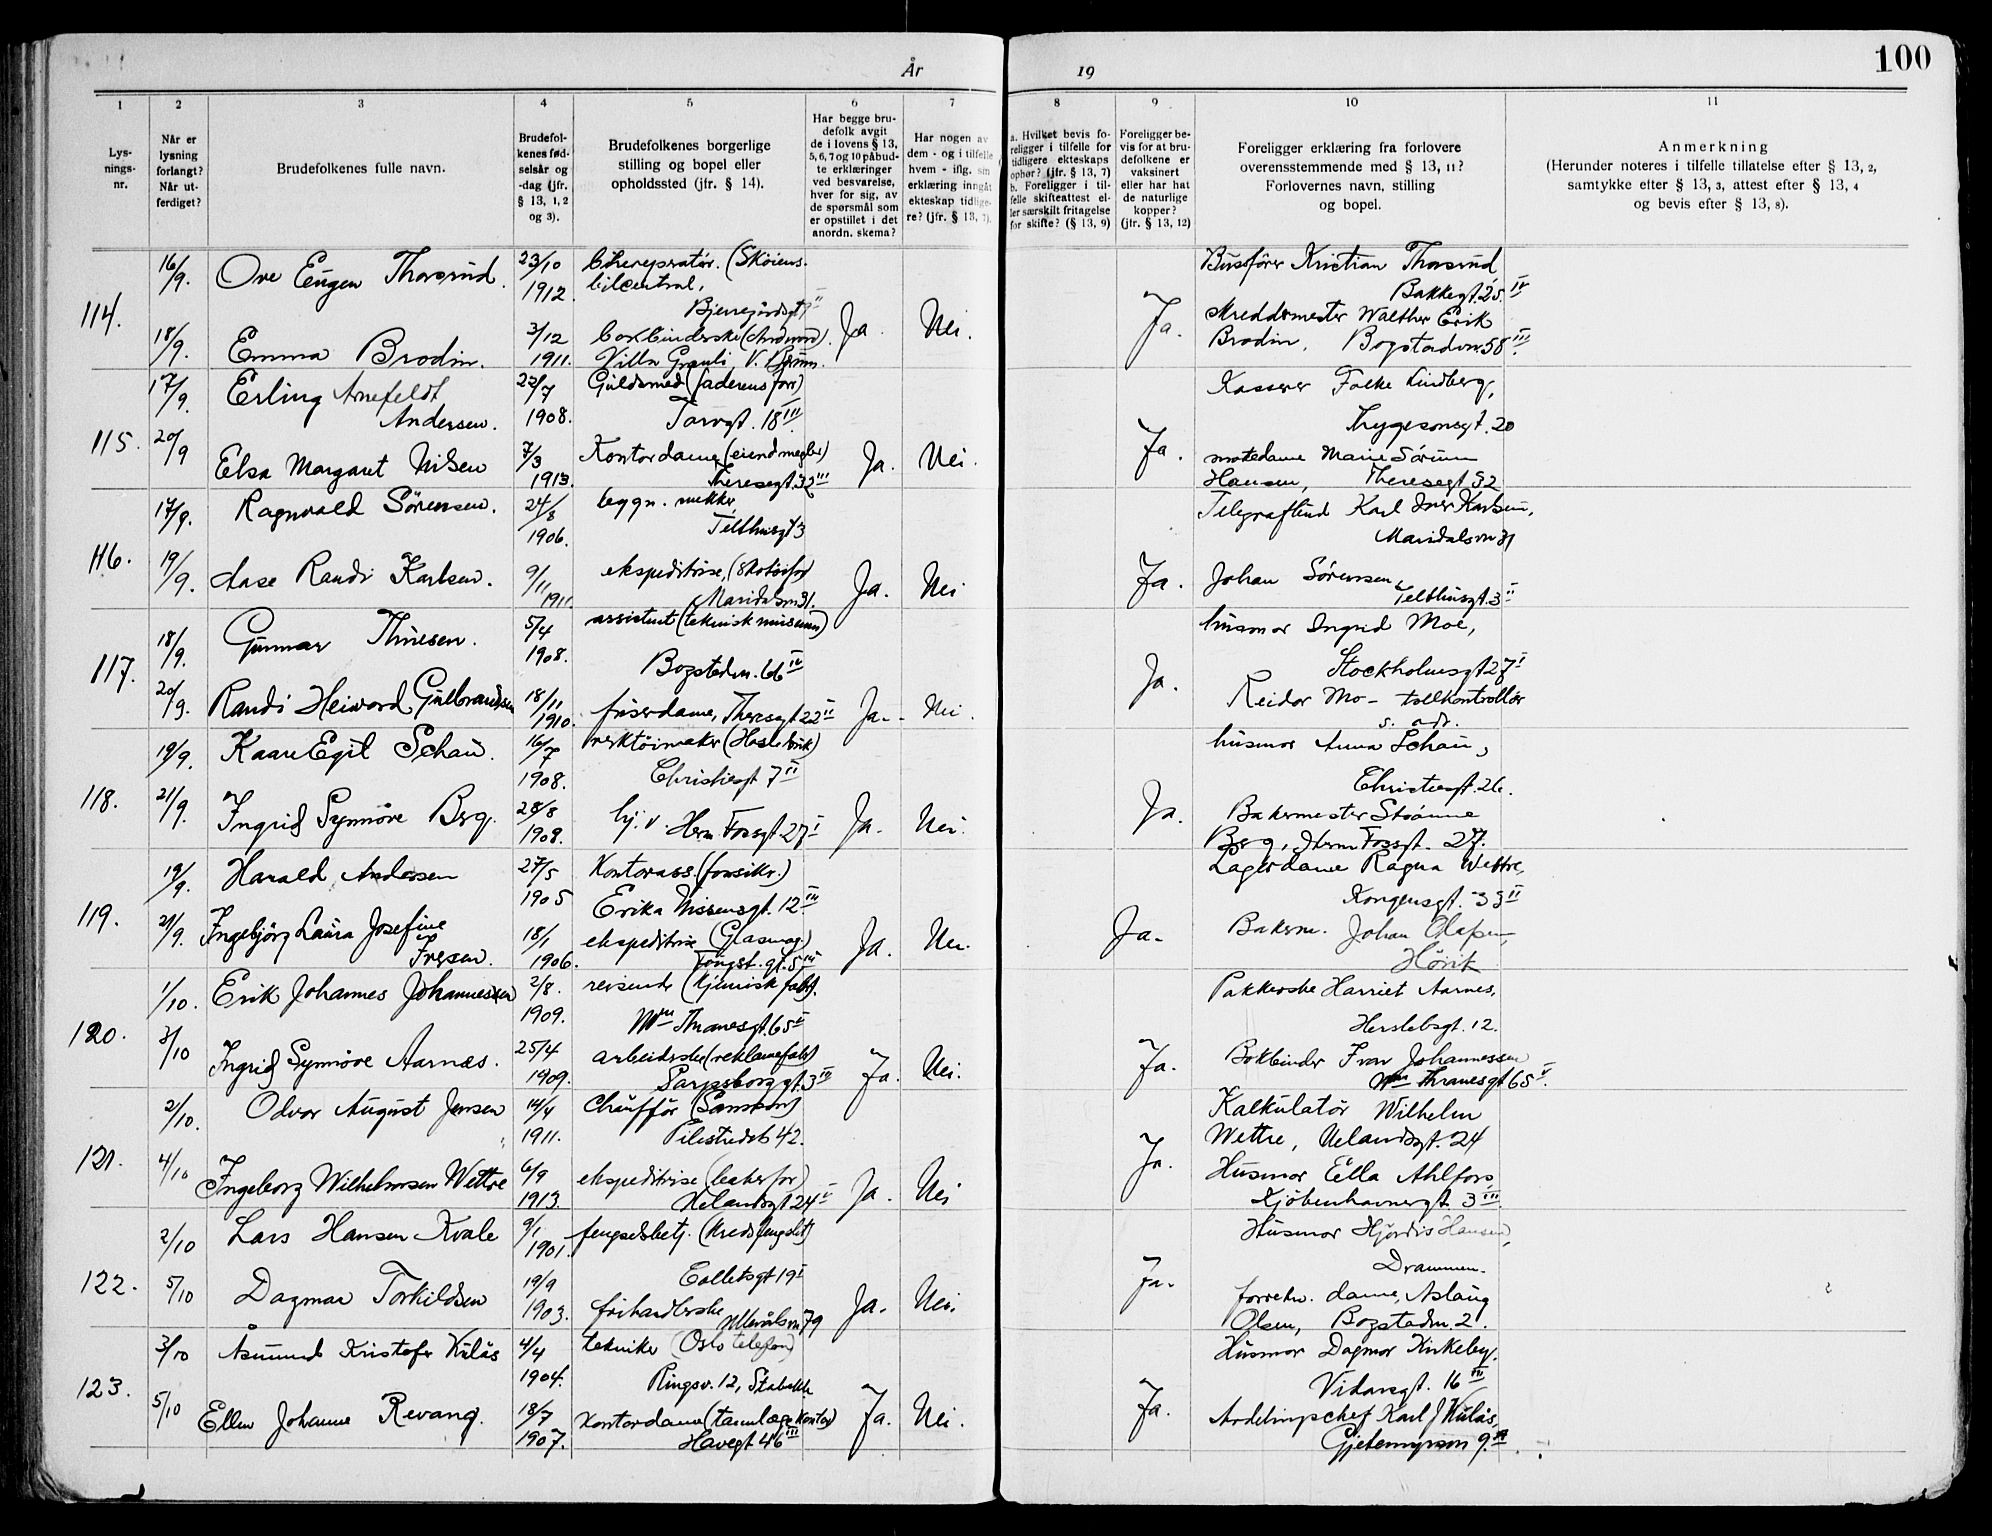 100
År 19
1 2 3 4 5 6 7 8 9 10 11
Lys-
nings-
nr.
Når er
lysning
forlangt?
Når ut-
ferdiget?
Brudefolkenes fulle navn.
Brudefol-
kenes fød-
selsår og
-dag (jfr.
§ 13, 1, 2
og 3).
Brudefolkenes borgerlige
stilling og bopel eller
opholdssted (jfr. § 14).
Har begge bru-
defolk avgit
de i lovens § 13,
5, 6, 7 og 10 påbud-
te erklæringer
ved besvarelse,
hver for sig, av
de spørsmål som
er opstillet i det
anordn. skema?
Har nogen av
dem - og i tilfelle
hvem - iflg. sin
erklæring inngåt
ekteskap tidlige-
re? (jfr. § 13, 7).
a. Hvilket bevis fo-
religger i tilfelle for
tidligere ekteskaps
ophør? (jfr. § 13, 7)
b. Foreligger i til-
felle skifteattest el-
ler særskilt fritagelse
for skifte? (§ 13, 9)
Foreligger be-
vis for at bru-
defolkene er
vaksinert
eller har hat
de naturlige
kopper?
(jfr. § 13, 12)
Foreligger erklæring fra forlovere
overensstemmende med § 13, 11?
Forlovernes navn, stilling
og bopel.
Anmerkning
(Herunder noteres i tilfelle tillatelse efter § 13, 2,
samtykke efter § 13, 3, attest efter § 13, 4
og bevis efter § 13, 8).
114.
16/9. Ove Eugen Thorsrud. 23/10 1912. (Skøiens
bilcentral,
Bussfører Kristian Thorsrud
Bakkegt. 25 IV
18/9. Emma Brodin. 3/12 1911.
Villa Granli V. Bærum.
Ja. Nei. Ja.
Skreddermester Walther Erik
Brodin, Bogstadvn. 58 III
115.
17/9. Erling Arnefeldt
Andersen. 22/7 1908. Guldsmed (faderens forr)
Torvgt. 18 III
Kasserer Folke Lindberg,
Thygesonsgt. 20
20/9 Elsa Margaret Nilsen 7/3 1913. Kontordame (eiendmegler)
Theresegt. 32 III
Ja. Nei. Ja.
motedame Marie Sørum
Hansen, Theresegt 32
116.
17/9. Ragnvald Sørensen. 24/8 1906. byggn. snekker,
Telthusgt 3
Karl Iver Karlsen,
Maridalsvn 31
19/9. Aase Randi Karlsen. 9/11 1911. ekspeditrise, (skotøifor)
Maridalsvn 31.
Ja. Nei Ja.
Johan Sørensen,
Telthusgt. 3 II
117.
18/9. Gunnar Thuesen. 5/4 1908. assistent (teknisk museum)
Bogstadvn. 66 IV
husmor Ingrid Moe,
Stockholmsgt 27 I
20/9. Randi Heiword Gulbrandsen 18/11 1910. friserdame, Theresegt 22 II
Ja. Nei. Ja.
Reidar Mo - tollkontrollør
s. adr.
118.
19/9. Kaare Egil Schau. 16/7 1908. verktøimaker (Hasle bruk)
Christiesgt 7 II
husmor Anna Schau,
Christiesgt. 26.
21/9. Ingrid Synnöve Berg. 28/8 1908. hj. v Herm. Fossgt. 27 I
Ja. Nei. Ja.
Bakermester Strömme
Berg, Herm Fossgt. 27.
119.
19/9. Harald Andersen 27/5 1905 Kontorass. (forsikr.)
Erika Nissensgt. 12 III
Lagerdame Ragna Wettre,
Kongensgt. 33 II
21/9. Ingebjörg Laura Josefine
18/1 1906. ekspeditrise (Glasmag.)
Ja. Nei. Ja.
Bakerm. Johan Olafsen,
Hövik
120.
1/10. Erik Johannes Johannessen 2/8. 1909. reisende (Kjemisk fabr).
Wm Thranesgt. 65 V
Pakkerske Harriet Aarnes,
Herslebsgt. 12.
3/10 Ingrid Synnöve Aarnæs. 25/4 1909. arbeiderske (reklamefabr)
Sarpsborggt. 3 IV
Ja. Nei. Ja.
Bokbinder Ivar Johannessen
Wm Thranesgt 65 V.
121.
2/10. Odvar August Jensen 14/4 1911. Chauffør (Samson)
Pilestredet 42.
Kalkulatör Wilhelm
Wettre, Uelandsgt. 24
4/10 Ingeborg Wilhelmsen Wettre 6/9 1913. ekspeditrise (bakerfor)
Uelandsgt 24 II
Ja. Nei Ja.
Husmor Ella Ahlfors,
Kjöbenhavnergt 3 III.
122.
2/10 Lars Hansen Kvale 9/1 1901. fengselsbetj. (Kredsfengslet)
Colletsgt 19 I
Husmor Hjördis Hansen,
Drammen.
5/10 Dagmar Torkildsen 19/9 1903. frihandlerske
Ullevålsvn 79
Ja. Nei. Ja.
forretn. dame, Aslaug
Olsen, Bogstadvn. 2.
123.
3/10 Åsmund Kristofer Kulås 4/4 1904. tekniker (Oslo telefon)
Ringsv. 12, Stabekk
Husmor Dagmar Kirkeby.
Vidarsgt. 16 III
5/10 Ellen Johanne Revang. 18/7 1907. Kontordame (tannlægekontor)
Havegt 46 III
Ja. Nei. Ja.
Avdelingschef Karl J Kulås,